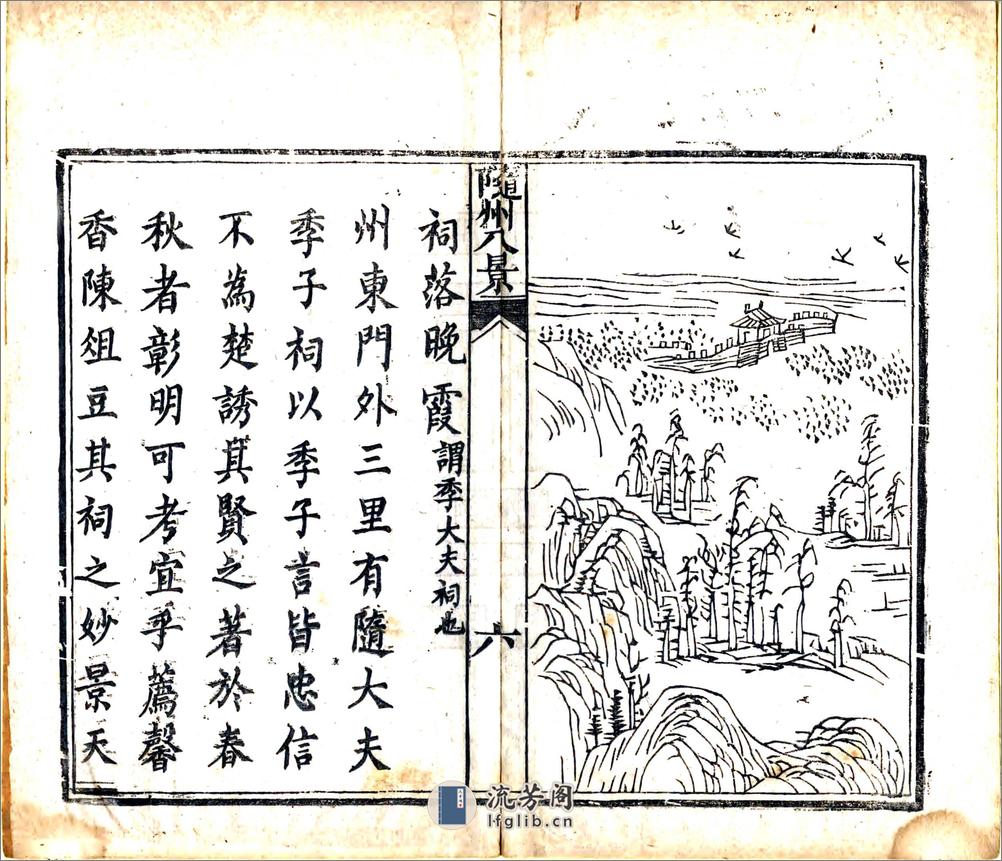 隨州八景
六
祠落晚霞謂季大夫祠也
州東門外三里有隨大夫
季子祠以季子言皆忠信
不為楚誘其賢之著於春
秋者彰明可考宜乎薦馨
香陳俎豆其祠之妙景天
流芳阁
lfglib.cn